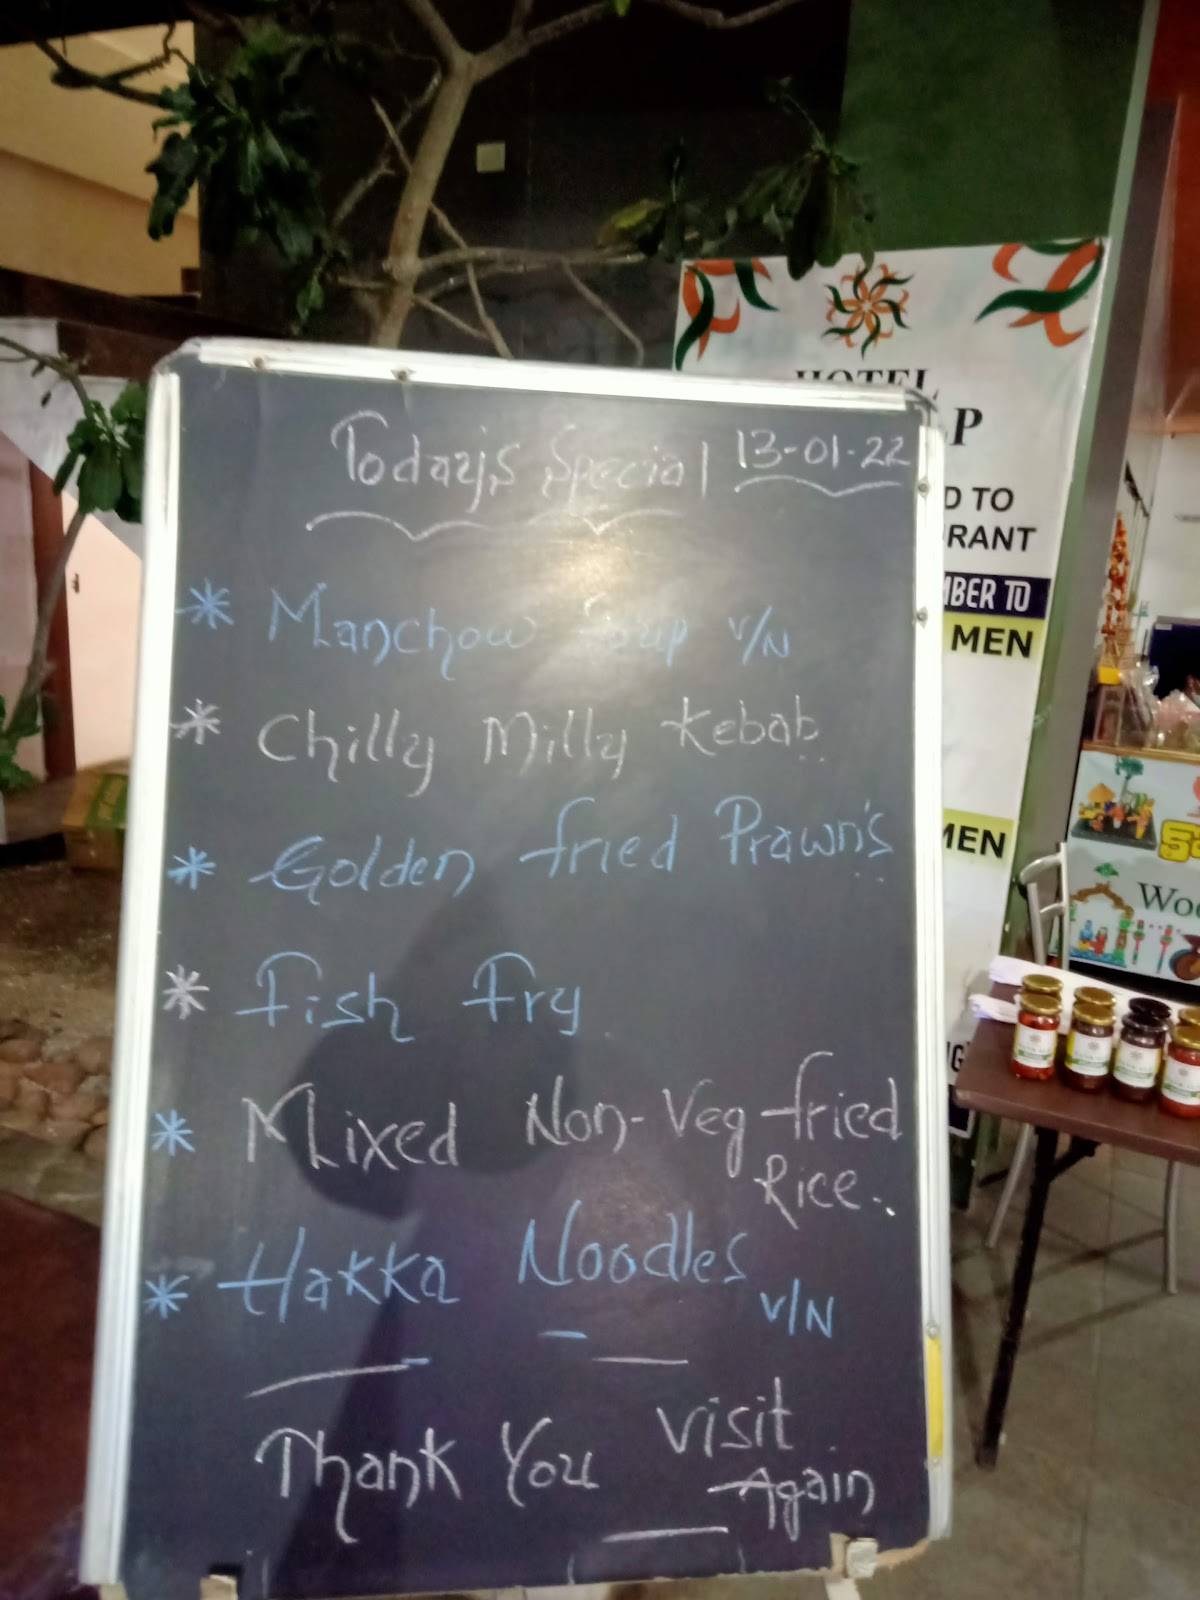 Today's Special 13-01-22
* Manchow Soup V/N
* Chilly Milly Kebab..
* Golden fried Prawn's
* Fish Fry.
* Mixed Non-Veg fried
Rice..
* Hakka Noodles
V/N
Thank You Visit
Again
HOTEL
P
D TO
RANT
MBER TO
MEN
MEN